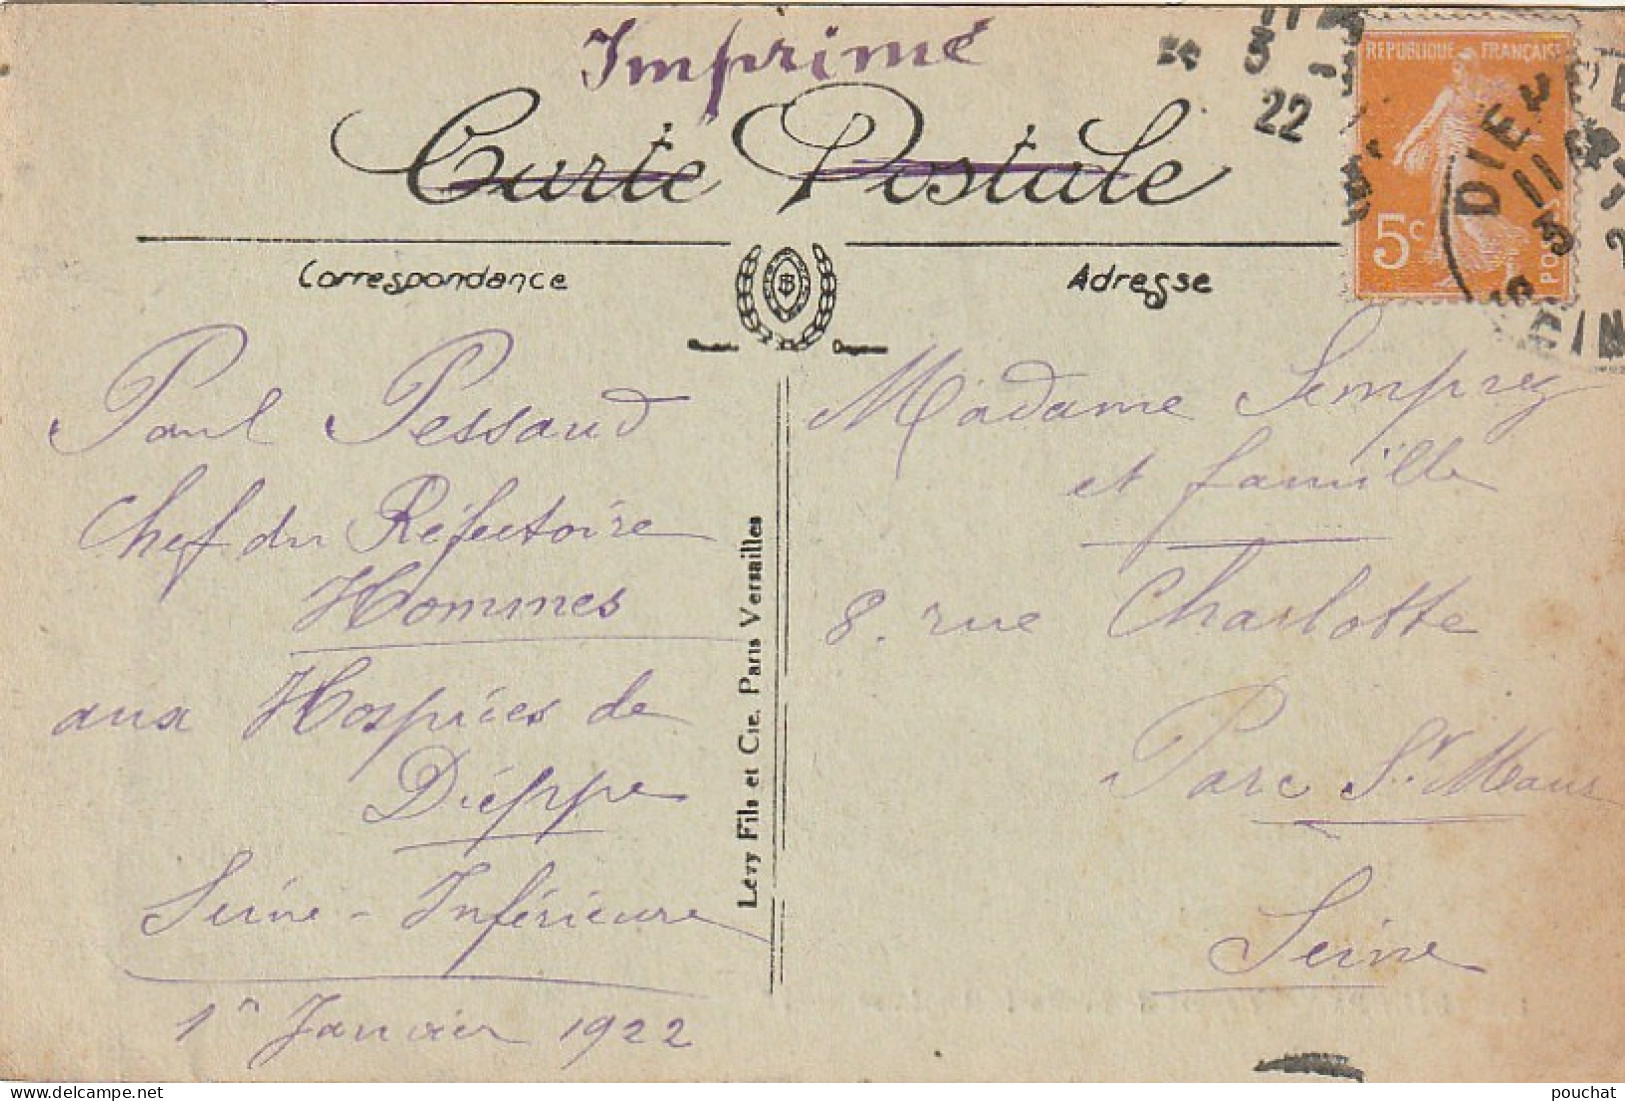 Imprimé
Carte Postale
Correspondance
Adresse
REPUBLIQUE FRANÇAISE
5c
POSTES
DIEPPE
5 -
22
Paul Pessaud
Chef du Réfectoire
Hommes
aux Hospices de
Dieppe
Seine-Inférieure
1er Janvier 1922
Lévy Fils et Cie. Paris Versailles
Madame Semprez
et famille
8. rue Charlotte
Parc St. Maur
Seine
pouchat